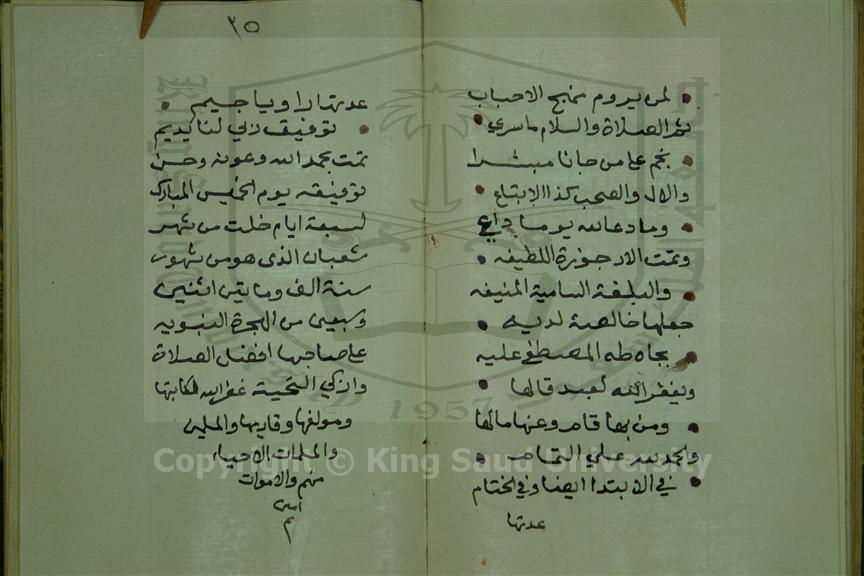 لمن يروم منهج الاحباب
ثم الصلاة والسلام ما سرى
نجم على من جانا مبشرا
والال والصحب كذا الاتباع
وما دعا لله يوما داعي
وتمت الارجوزة اللطيفه
والبلغة السامية المنيفه
جعلها خالصة لديه
بجاه طه المصطفى عليه
ويغفر الله لعبد قالها
ومن بها قام وعنها مالها
والحمد لله على التمام
في الابتدا ايضا وفي الختام
عدتها
٣٥
عدتها را ويا جيم
توفيق ربي لنا يديم
تمت بحمد الله وعونه وحسن
توفيقه يوم الخميس المبارك
لسبعة ايام خلت من شهر
شعبان الذي هو من شهور
سنة الف ومايتين اثنين
وسبعين من الهجرة النبويه
على صاحبها افضل الصلاة
وازكي التحية غفر الله لكاتبها
ومولفها وقاريها والمسلمين
والمسلمات الاحياء
منهم والاموات
امين
م
Copyright © King Saud University
1957